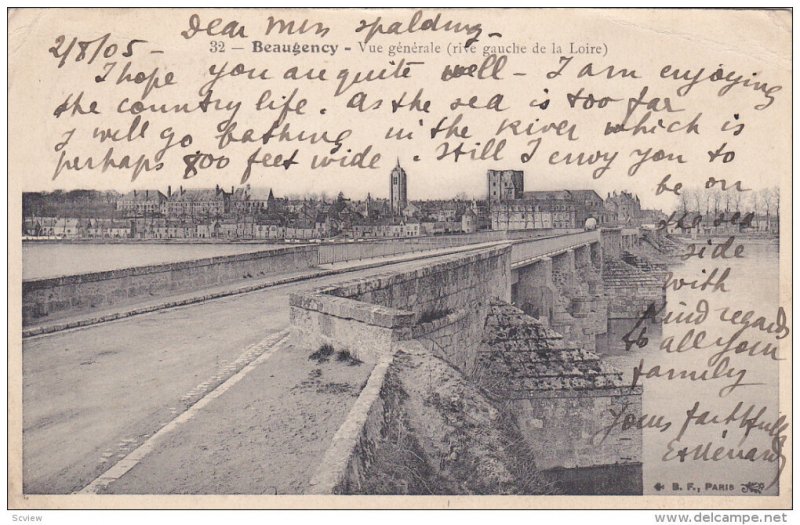 Dear Mrs Spalding -
2/8/05 -
32 - Beaugency - Vue générale (rive gauche de la Loire)
I hope you are quite well - I am enjoying
the country life. As the sea is too far
I will go bathing in the river which is
perhaps 800 feet wide. Still I envoy you to
be on
the sea
side
with
kind regards
to all your
family
Yours faithfully
B. F., PARIS
Scview
www.delcampe.net